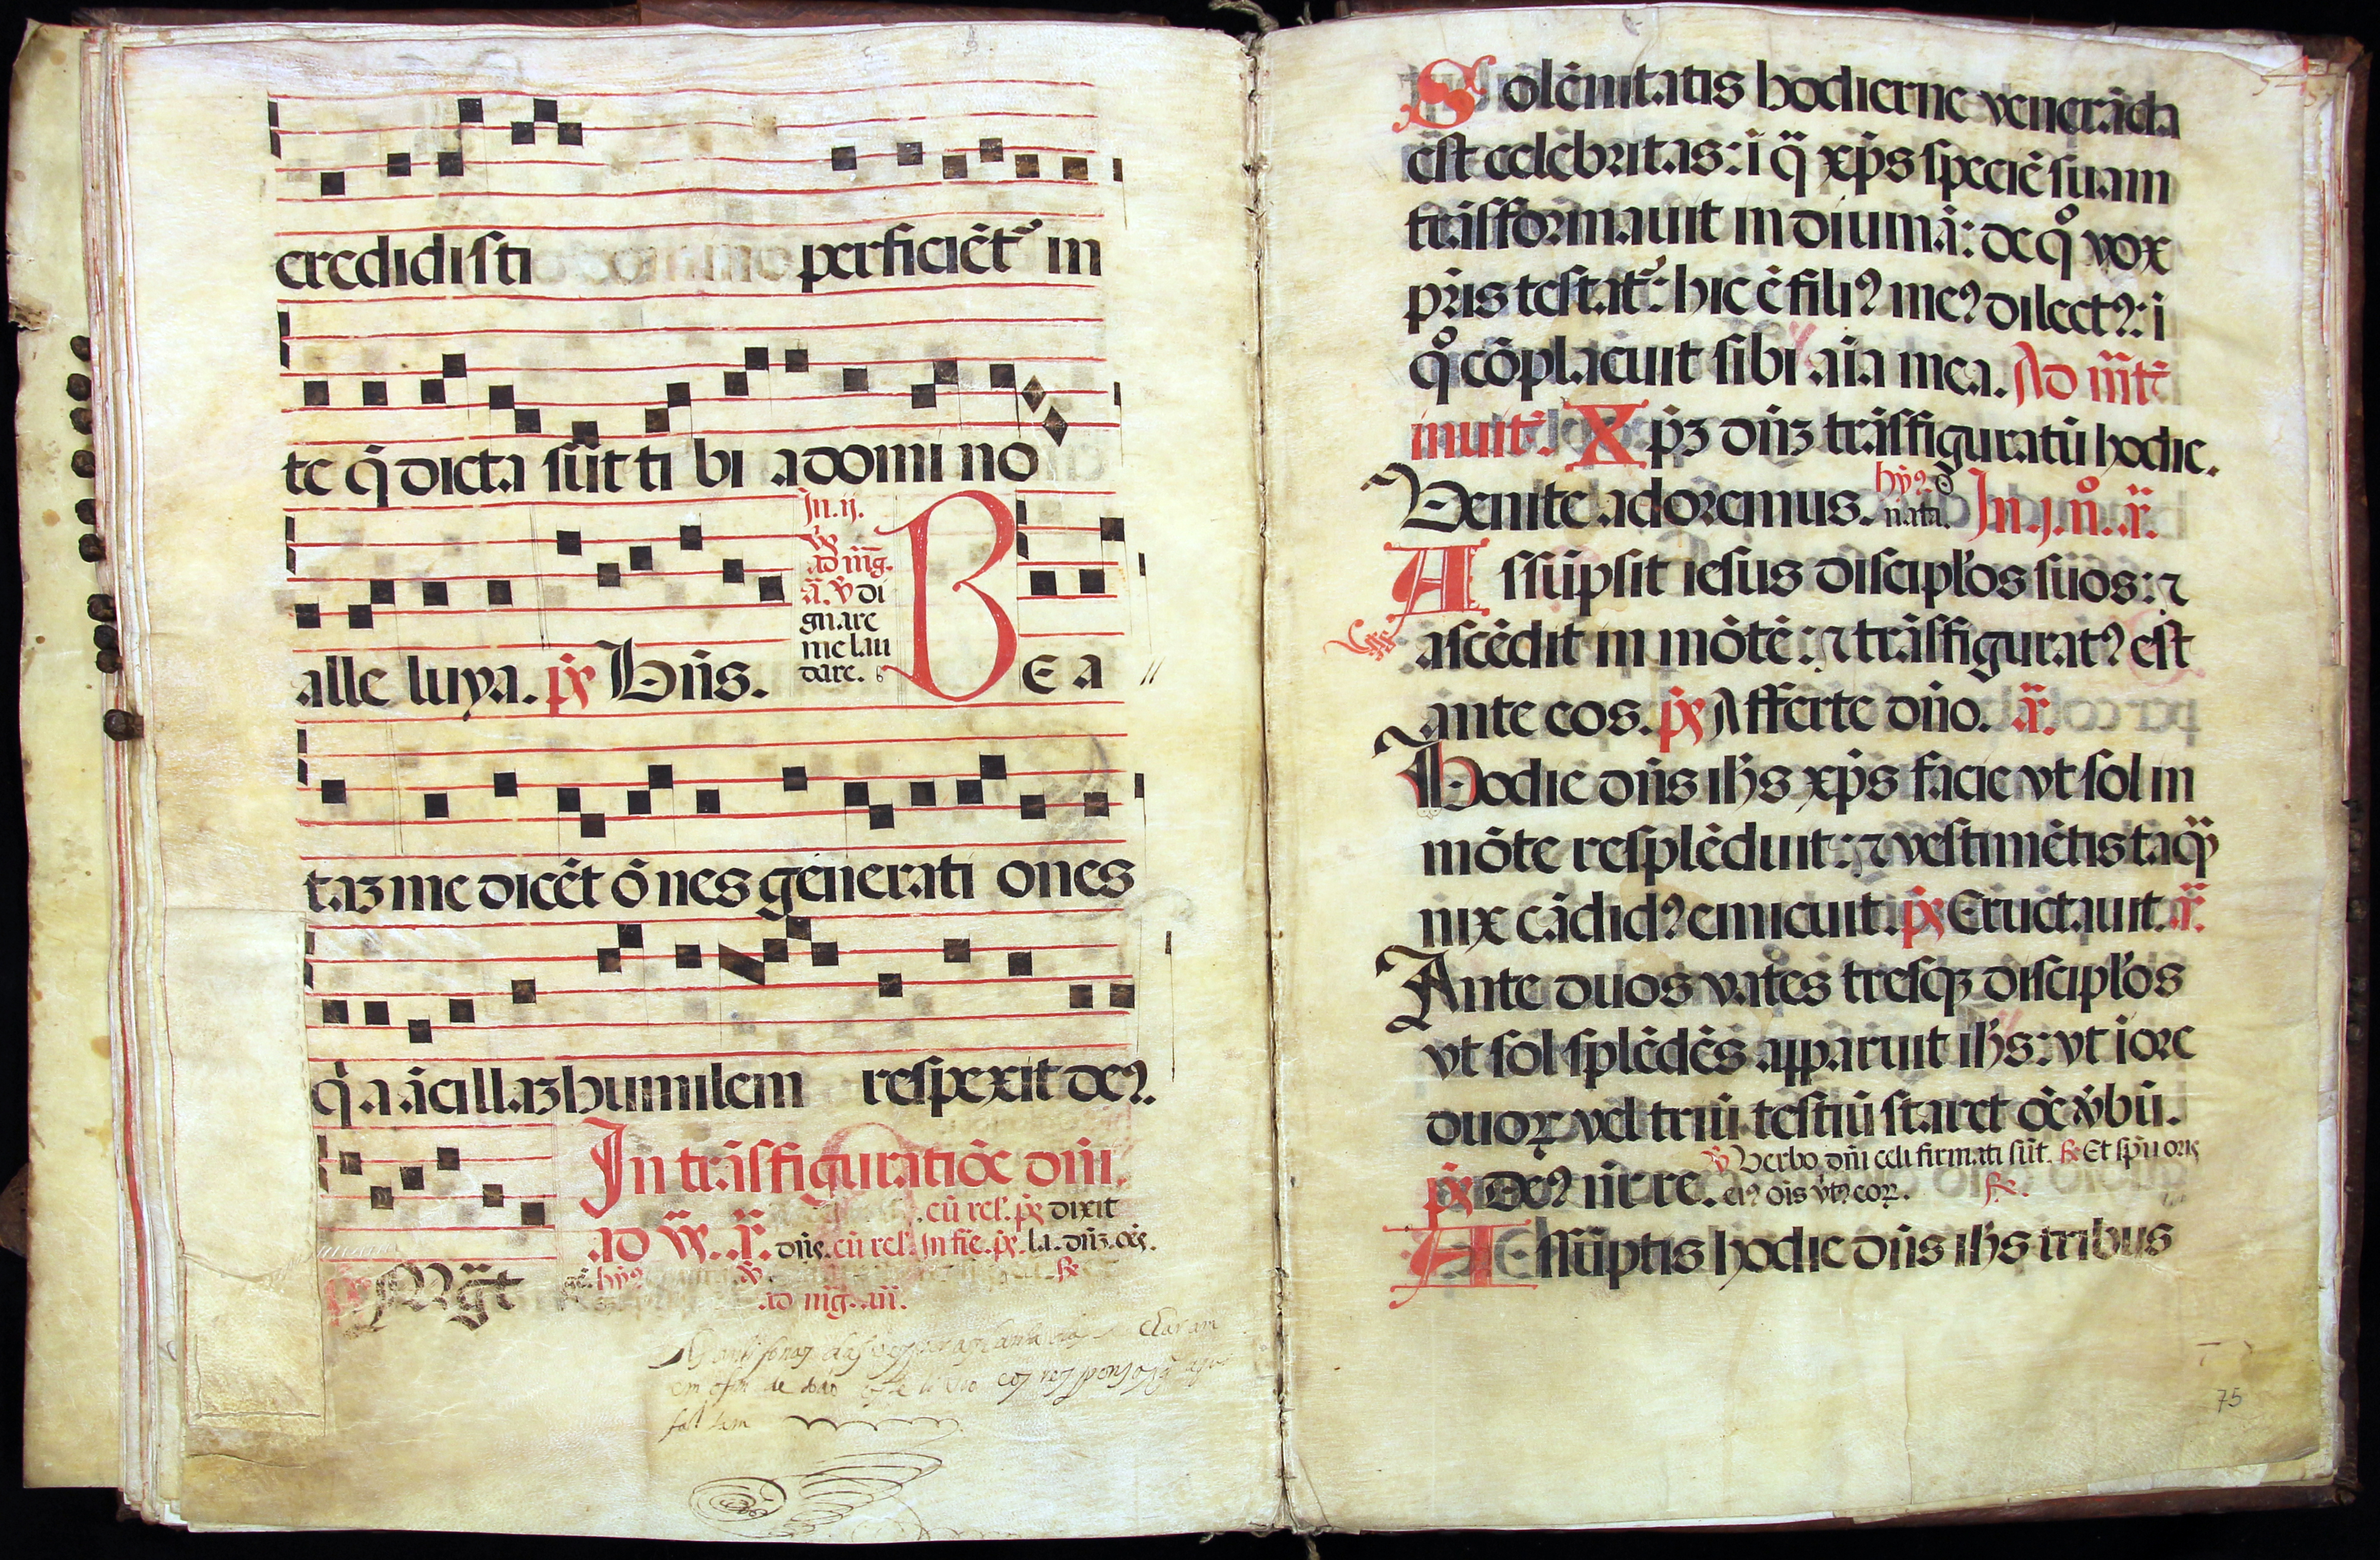 credidisti perficiēt᷑ in
te q̄ dicta sūt ti bi a domi no
alle luya. p̄s Bn̄s.
In .ij.
ad mg̅.
ā. v̄ di
gnare
me lau
dare.
BE A
taʒ me dicēt ōnes generati ones
q̇a ācillaʒ humilem respexit deꝰ.
In trāsfiguratiōe dn̄i.
cū rel'. p̄s dixit
ad v̄. ā. dn̄s. cū rel'. In fīe. p̄s. la. dn̄ʒ. oēs.
Mg̅t hyꝰ
ad mg̅. an̄.
Solēnitatis hodierne venerāda
est celebritas: i q̄ xp̄s speciē suam
trāsformauit in diuinā: de qͦ vox
pr̄is testat᷑: hic ē filiꝰ meꝰ dilectꝰ: i
qͦ cōplacuit sibi aīa mea. Ad mt̄
inuit̄. Xp̄ʒ dn̄ʒ trāsfiguratū hodie.
Venite adoremus. hyꝰ. In .j. nͦ. ā.
Assūpsit iesus discipl'os suos: ⁊
ascēdit in mōtē: ⁊ trāsfiguratꝰ est
ante eos. p̄s Afferte dn̄o. ā.
Hodie dn̄s ih̄s xp̄s facie vt sol in
mōte resplēduit: ⁊ vestimētis taq̄
nix cādidꝰ emicuit. p̄s Eructauit. ā.
Ante duos vates tresqʒ discipl'os
vt sol splēdēs apparuit ih̄s: vt i ore
duoꝝ vel triū testiū staret oē v̄bū.
v̄ Verbo dn̄i celi firmati sūt. Et spū oris
p̄s Deꝰ nr̄ re. eiꝰ oīs v̄tꝰ eoꝝ.
Assūptis hodie dn̄s ih̄s tribus
75